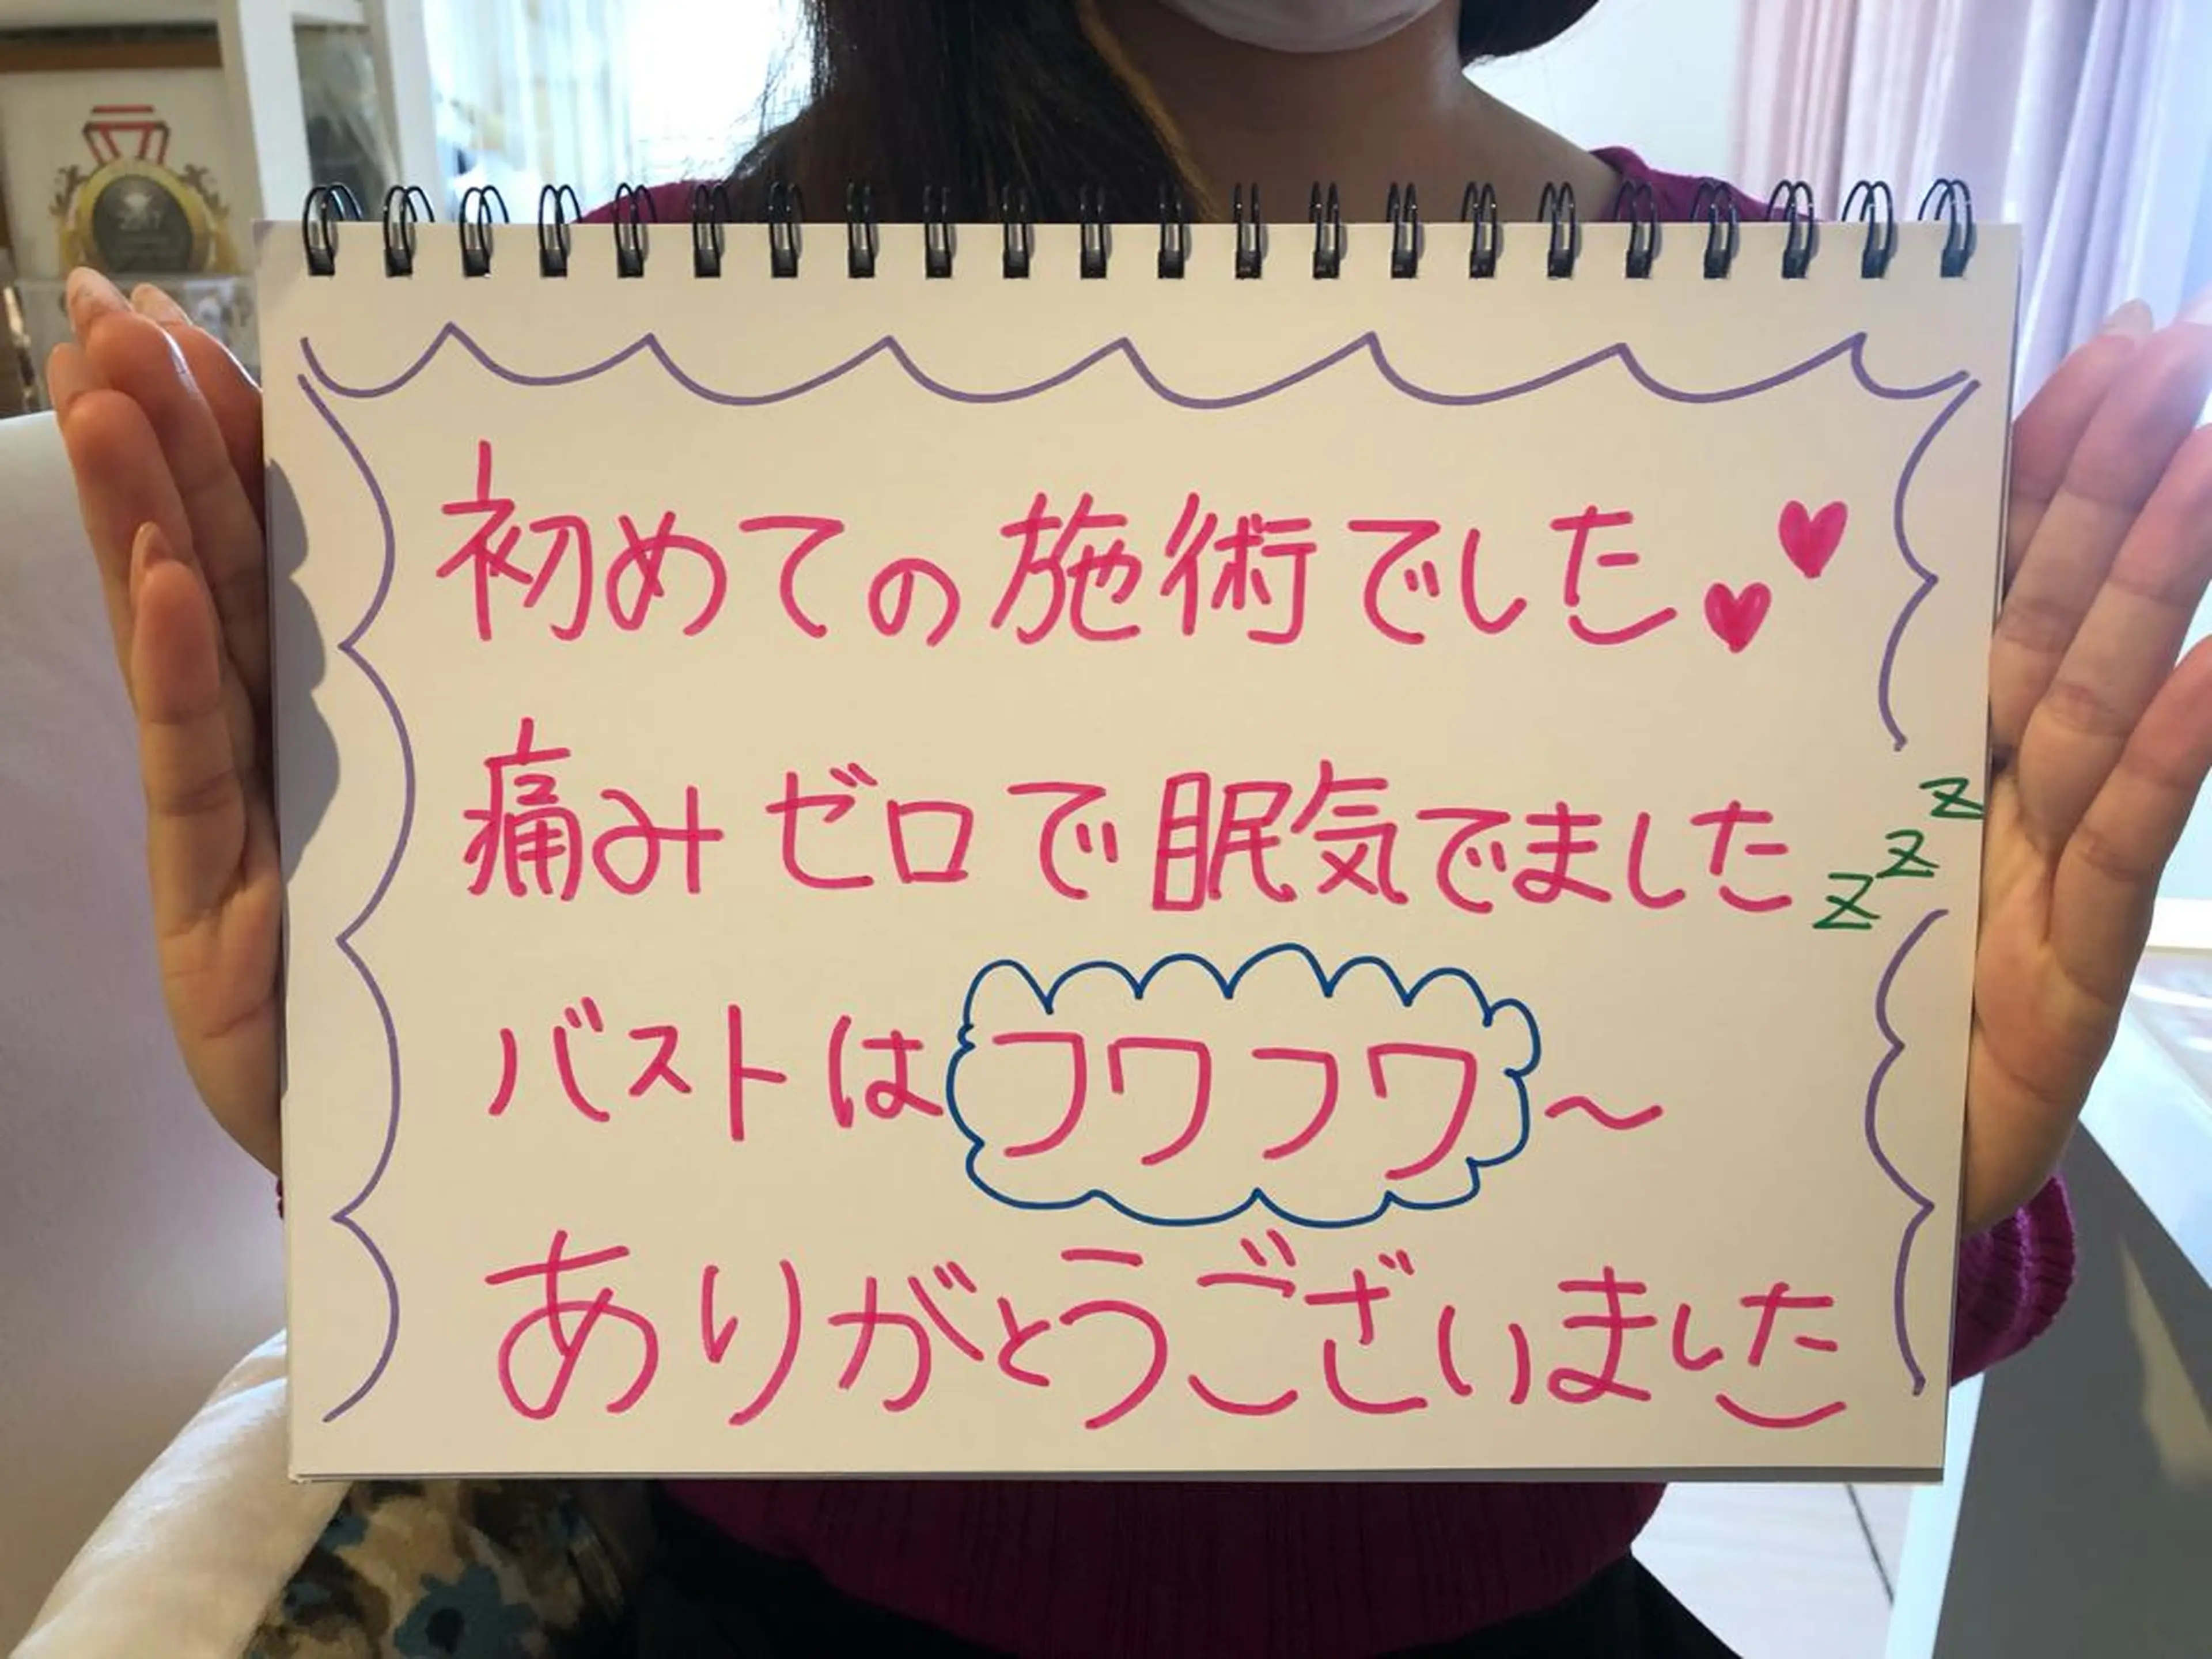 初めての施術でした♥♥
痛みゼロで眠気でましたzzz
バストはフワフワ～
ありがとうございました